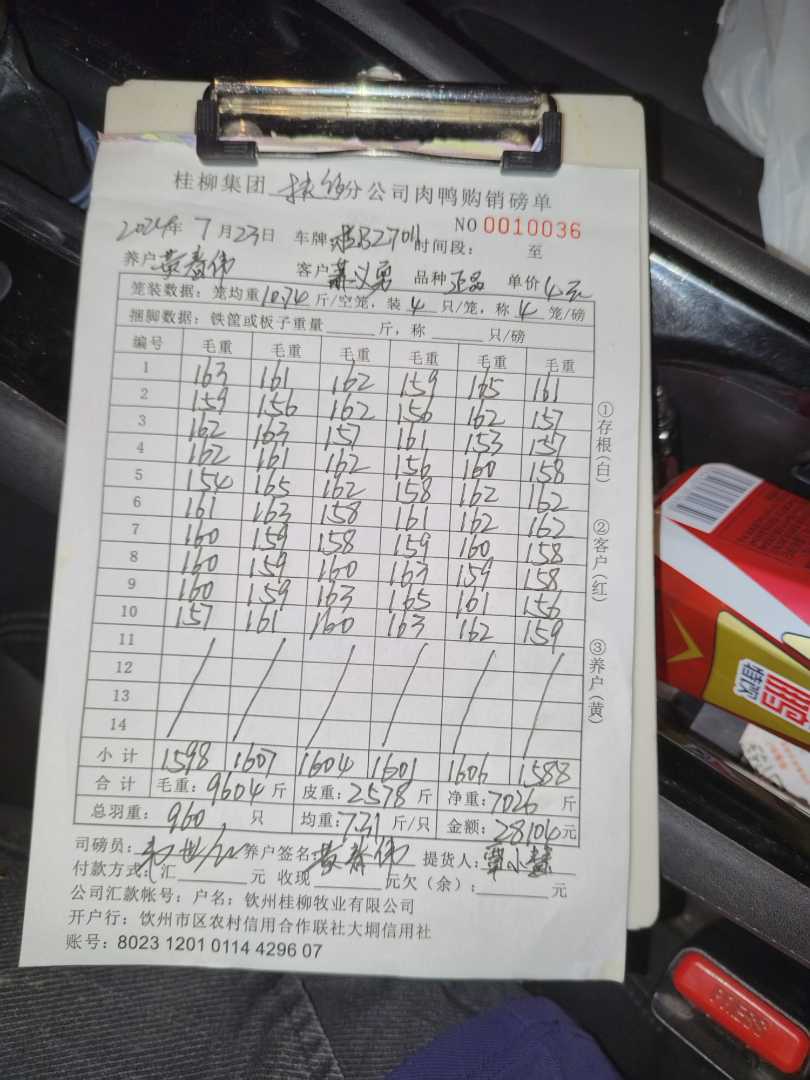 桂柳集团 分公司肉鸭购销磅单
NO 0010036
2024年 7月23日 车牌 B27011 时间段: 至
养户 黄春伟 客户 萧义勇 品种 正品 单价 4元
笼装数据: 笼均重 10.74 斤/空笼, 装 4 只/笼, 称 4 笼/磅
捆脚数据: 铁筐或板子重量 斤, 称 只/磅
编号 毛重 毛重 毛重 毛重 毛重 毛重
1 163 161 162 159 165 161
2 159 156 162 156 162 157
3 162 163 157 161 153 157
4 162 161 162 156 160 158
5 154 165 162 158 162 162
6 161 163 158 161 162 162
7 160 159 158 159 160 158
8 160 159 160 163 159 158
9 160 159 163 165 161 156
10 157 161 160 163 162 159
11
12
13
14
小计 1598 1607 1604 1601 1606 1588
合计 毛重: 9604 斤 皮重: 2578 斤 净重: 7026 斤
总羽重: 960 只 均重: 7.31 斤/只 金额: 28104 元
司磅员: 养户签名: 黄春伟 提货人: 覃小慧
付款方式: 汇 元 收现 元欠(余): 元
公司汇款帐号: 户名: 钦州桂柳牧业有限公司
开户行: 钦州市区农村信用合作联社大垌信用社
账号: 8023 1201 0114 4296 07
①存根(白)
②客户(红)
③养户(黄)